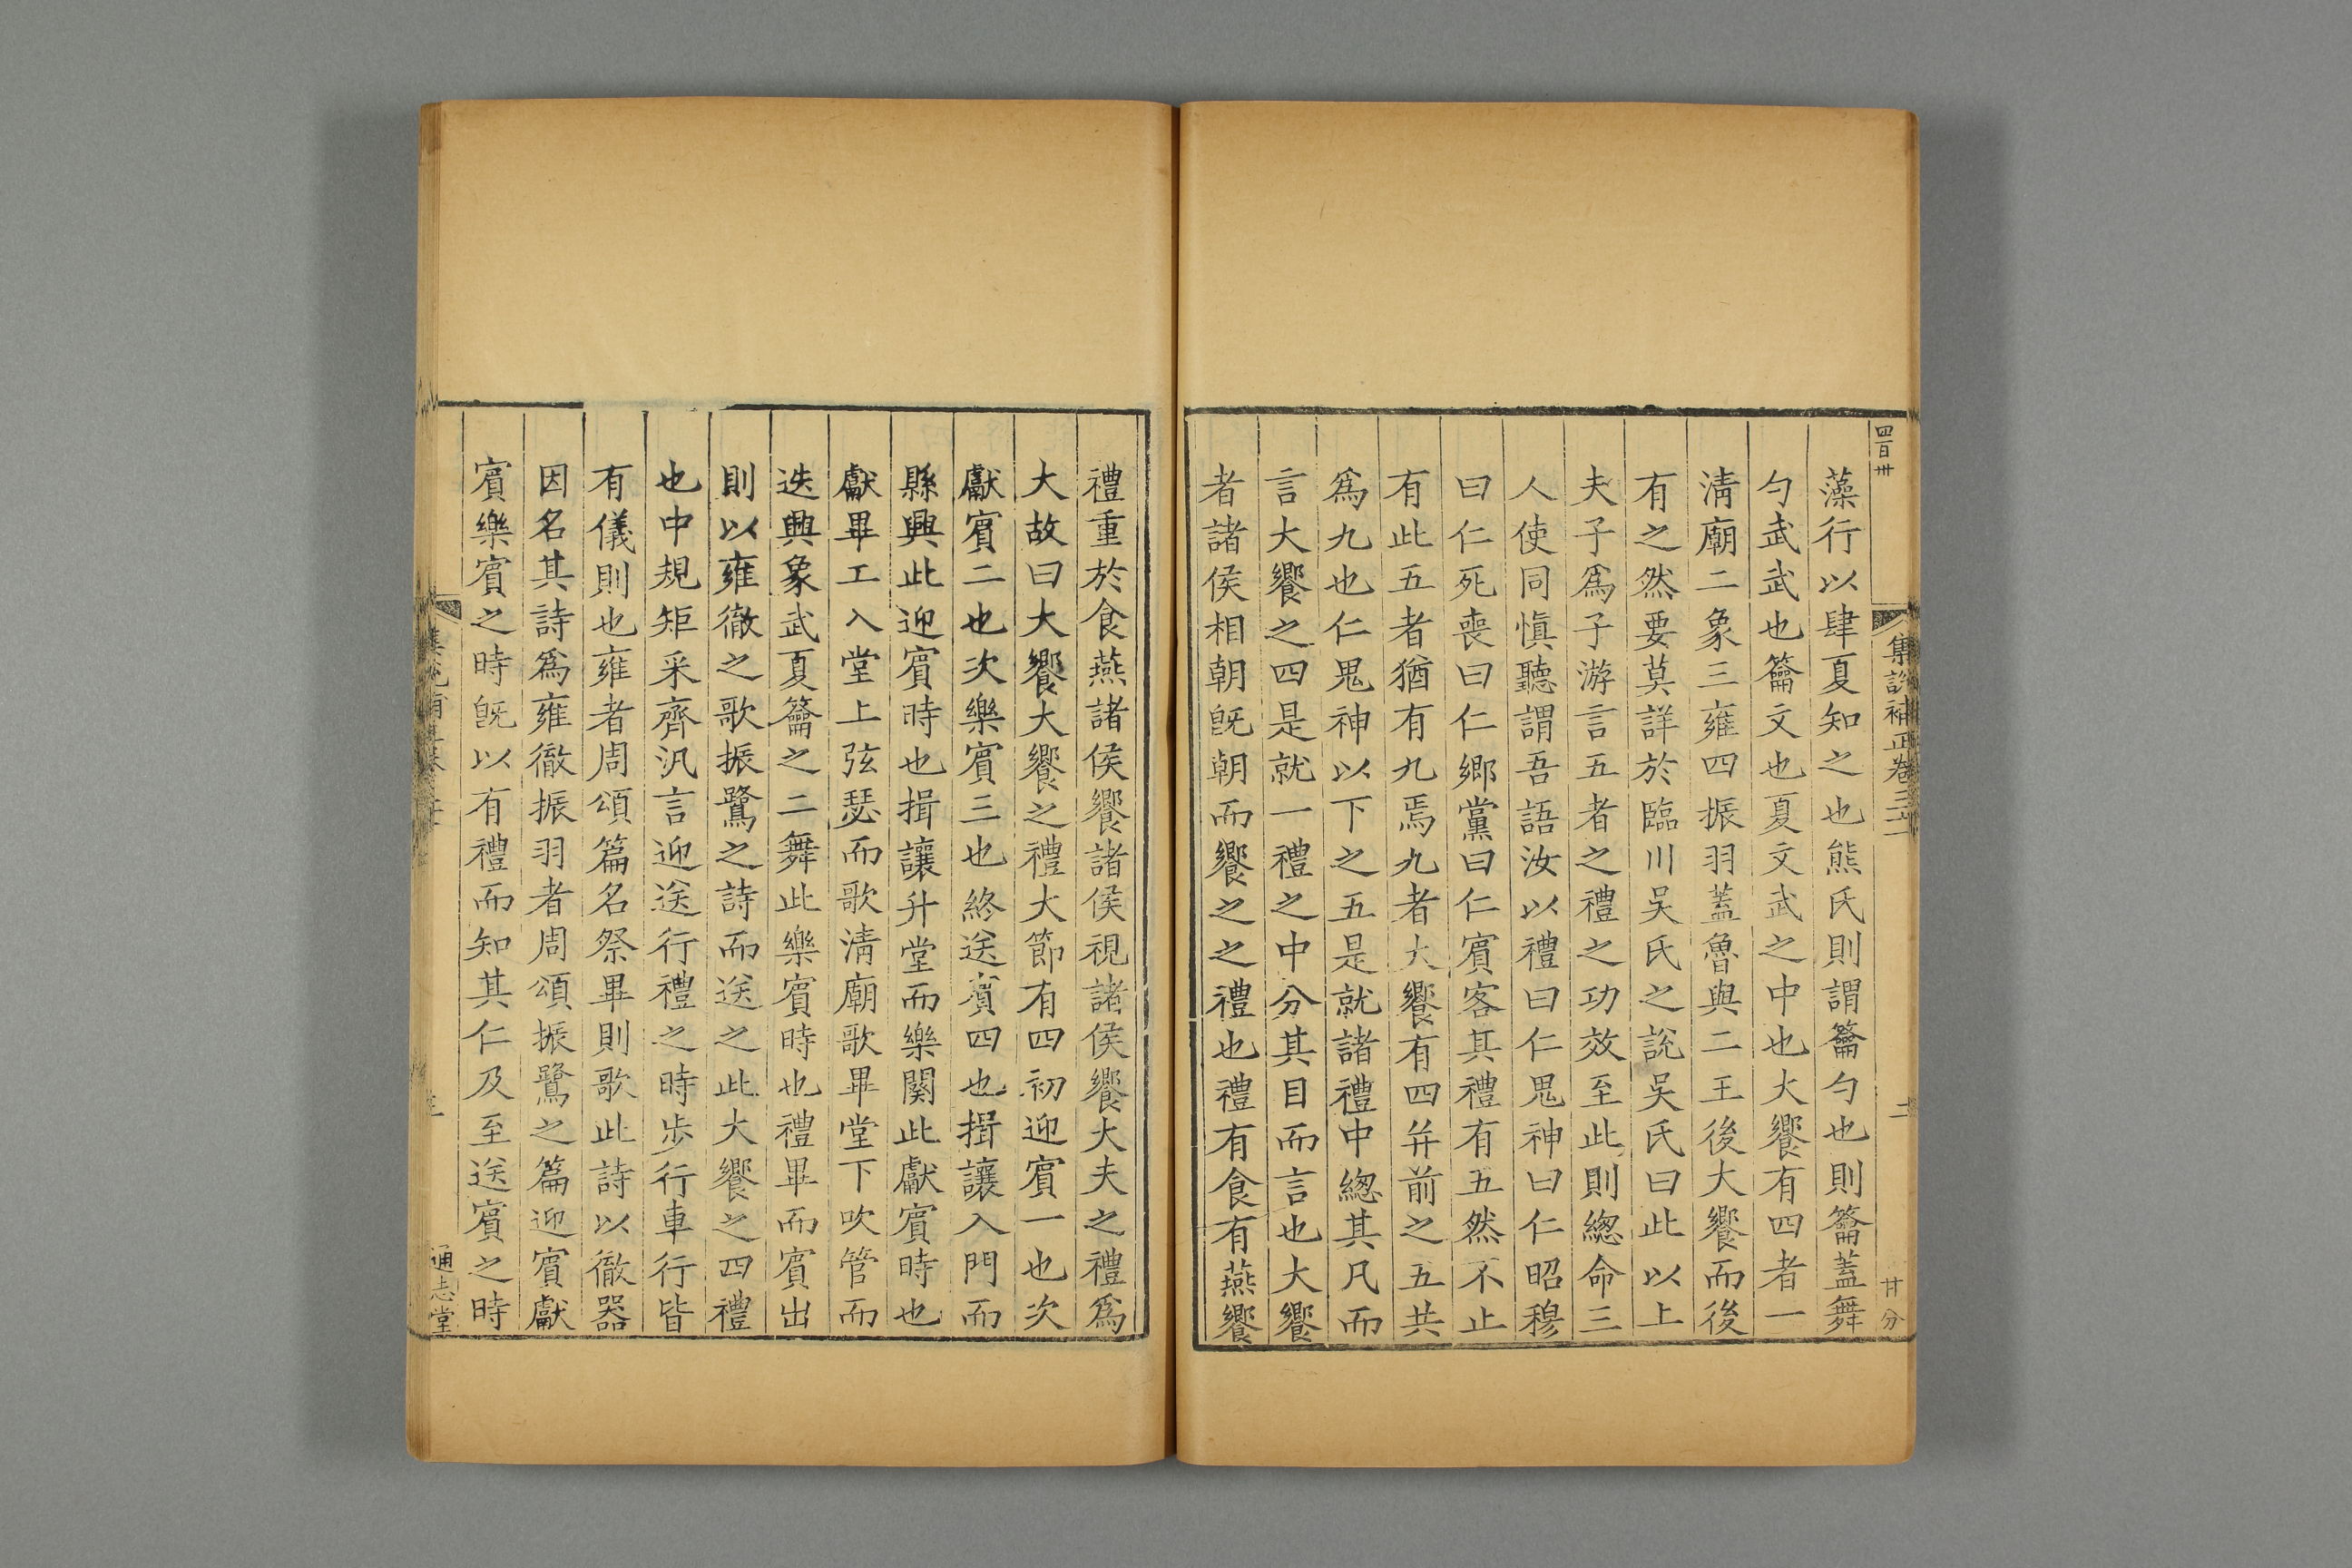 四百卅
集說補正卷三十一
二
廿分
藻行以肆夏知之也熊氏則謂籥勺也則籥蓋舞
勺武武也籥文也夏文武之中也大饗有四者一
淸廟二象三雍四振羽蓋魯與二王後大饗而後
有之然要莫詳於臨川吳氏之說吳氏曰此以上
夫子爲子游言五者之禮之功效至此則緫命三
人使同愼聽謂吾語汝以禮曰仁䰟神曰仁昭穆
曰仁死喪曰仁鄉黨曰仁賔客其禮有五然不止
有此五者猶有九焉九者大饗有四幷前之五共
爲九也仁䰟神以下之五是就諸禮中緫其凡而
言大饗之四是就一禮之中分其目而言也大饗
者諸侯相朝旣朝而饗之之禮也禮有食有燕饗
禮重於食燕諸侯饗諸侯視諸侯饗大夫之禮爲
大故曰大饗大饗之禮大節有四初迎賔一也次
獻賔二也次樂賔三也終送賔四也揖讓入門而
縣興此迎賔時也揖讓升堂而樂闋此獻賔時也
獻畢工入堂上弦瑟而歌淸廟歌畢堂下吹管而
迭興象武夏籥之二舞此樂賔時也禮畢而賔出
則以雍徹之歌振鷺之詩而送之此大饗之四禮
也中規矩采齊汎言迎送行禮之時步行車行皆
有儀則也雍者周頌篇名祭畢則歌此詩以徹器
因名其詩爲雍徹振羽者周頌振鷺之篇迎賔獻
賔樂賔之時旣以有禮而知其仁及至送賔之時
通志堂